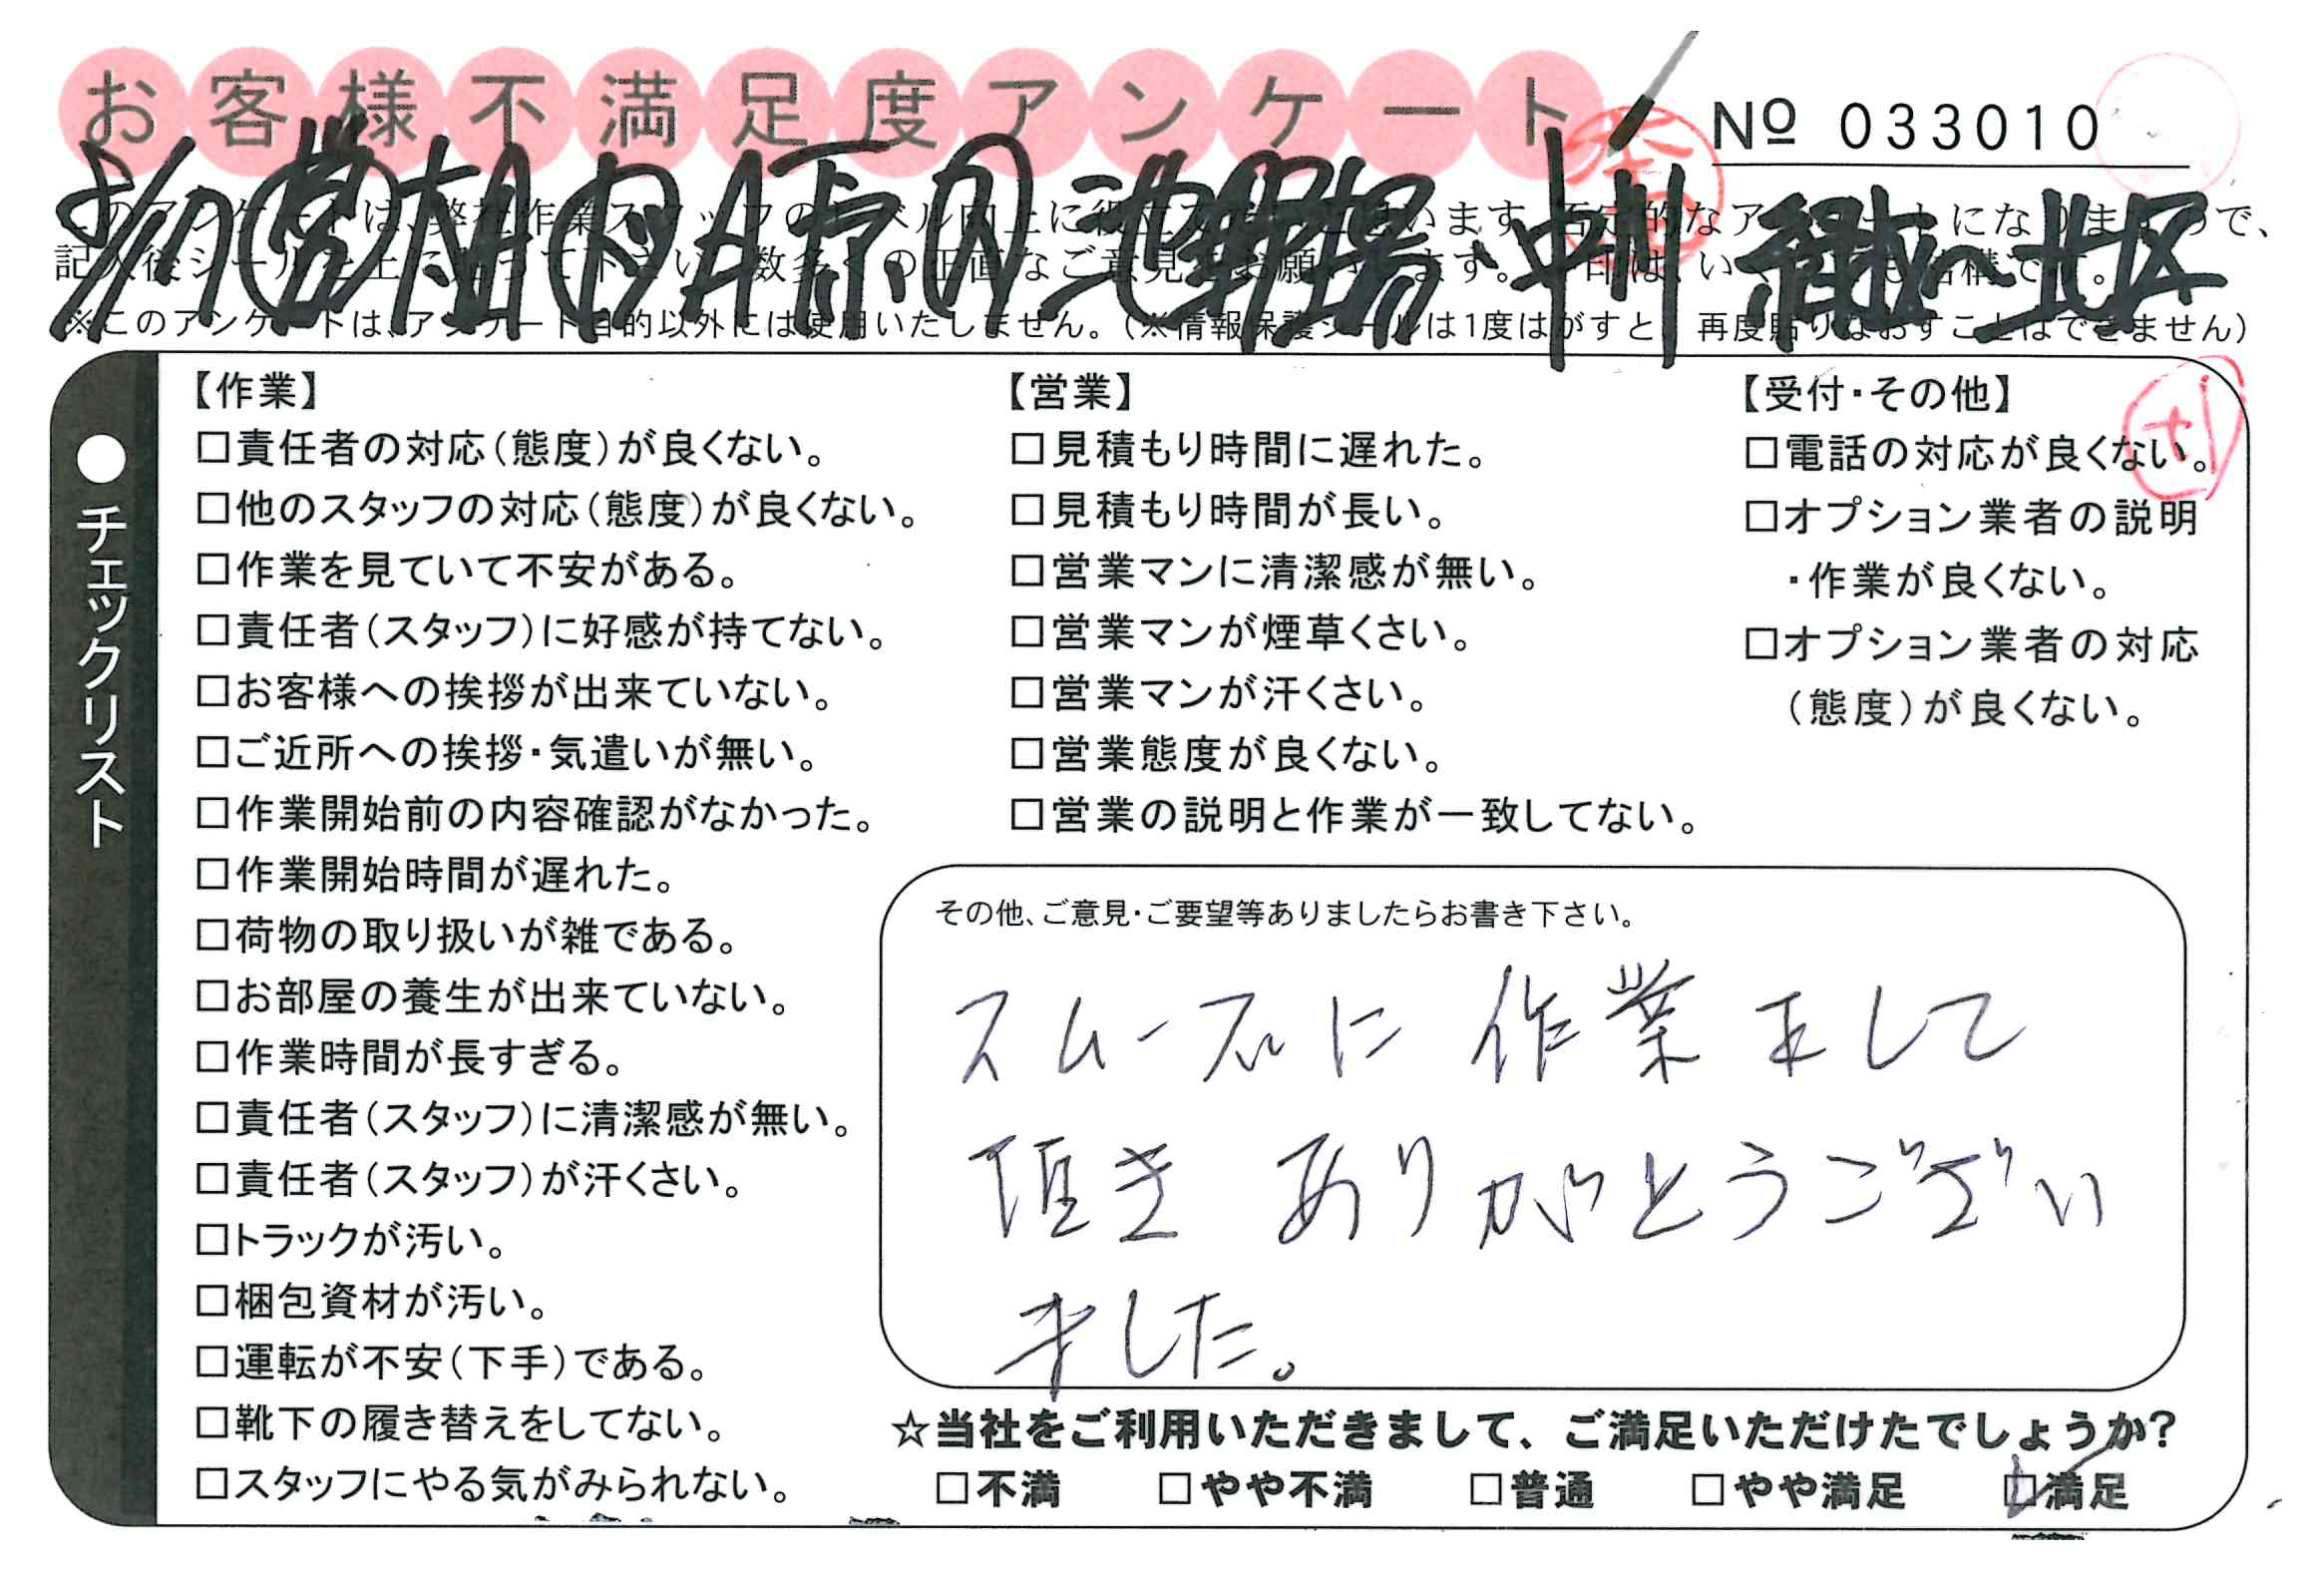 お客様不満足度アンケート
No 033010
※このアンケートは、アンケート目的以外には使用いたしません。（※情報保護シールは1度はがすと、再度貼りなおすことはできません）
●チェックリスト
【作業】
□責任者の対応（態度）が良くない。
□他のスタッフの対応（態度）が良くない。
□作業を見ていて不安がある。
□責任者（スタッフ）に好感が持てない。
□お客様への挨拶が出来ていない。
□ご近所への挨拶・気遣いが無い。
□作業開始前の内容確認がなかった。
□作業開始時間が遅れた。
□荷物の取り扱いが雑である。
□お部屋の養生が出来ていない。
□作業時間が長すぎる。
□責任者（スタッフ）に清潔感が無い。
□責任者（スタッフ）が汗くさい。
□トラックが汚い。
□梱包資材が汚い。
□運転が不安（下手）である。
□靴下の履き替えをしてない。
□スタッフにやる気がみられない。
【営業】
□見積もり時間に遅れた。
□見積もり時間が長い。
□営業マンに清潔感が無い。
□営業マンが煙草くさい。
□営業マンが汗くさい。
□営業態度が良くない。
□営業の説明と作業が一致してない。
【受付・その他】
□電話の対応が良くない。
□オプション業者の説明
・作業が良くない。
□オプション業者の対応
（態度）が良くない。
その他、ご意見・ご要望等ありましたらお書き下さい。
スムーズに 作業をして
頂き ありがとうござい
ました。
☆当社をご利用いただきまして、ご満足いただけたでしょうか？
□不満 □やや不満 □普通 □やや満足 ☑満足